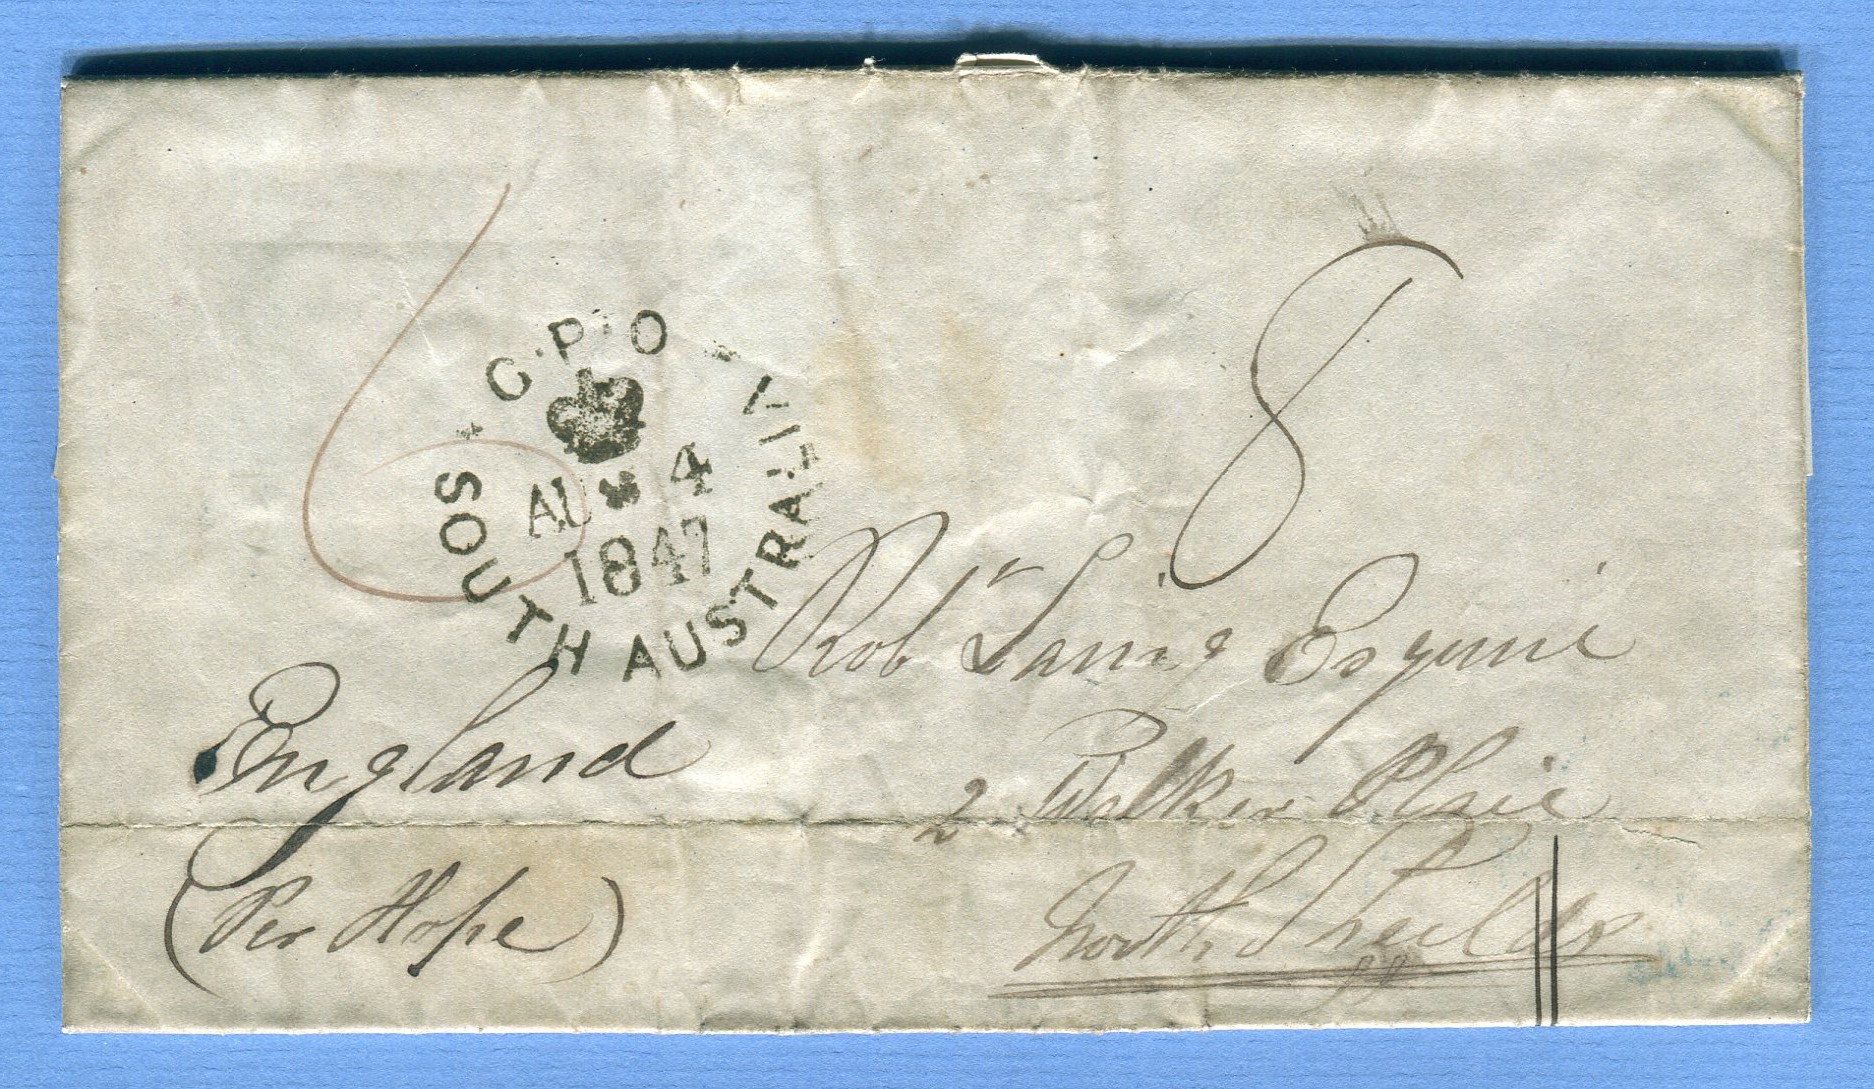 G·P·O
SOUTH AUSTRALIA
AU 4
1847
6
8
Robt Laing Esquire
2 Walker Place
North Sheilds
England
(Per Hope)